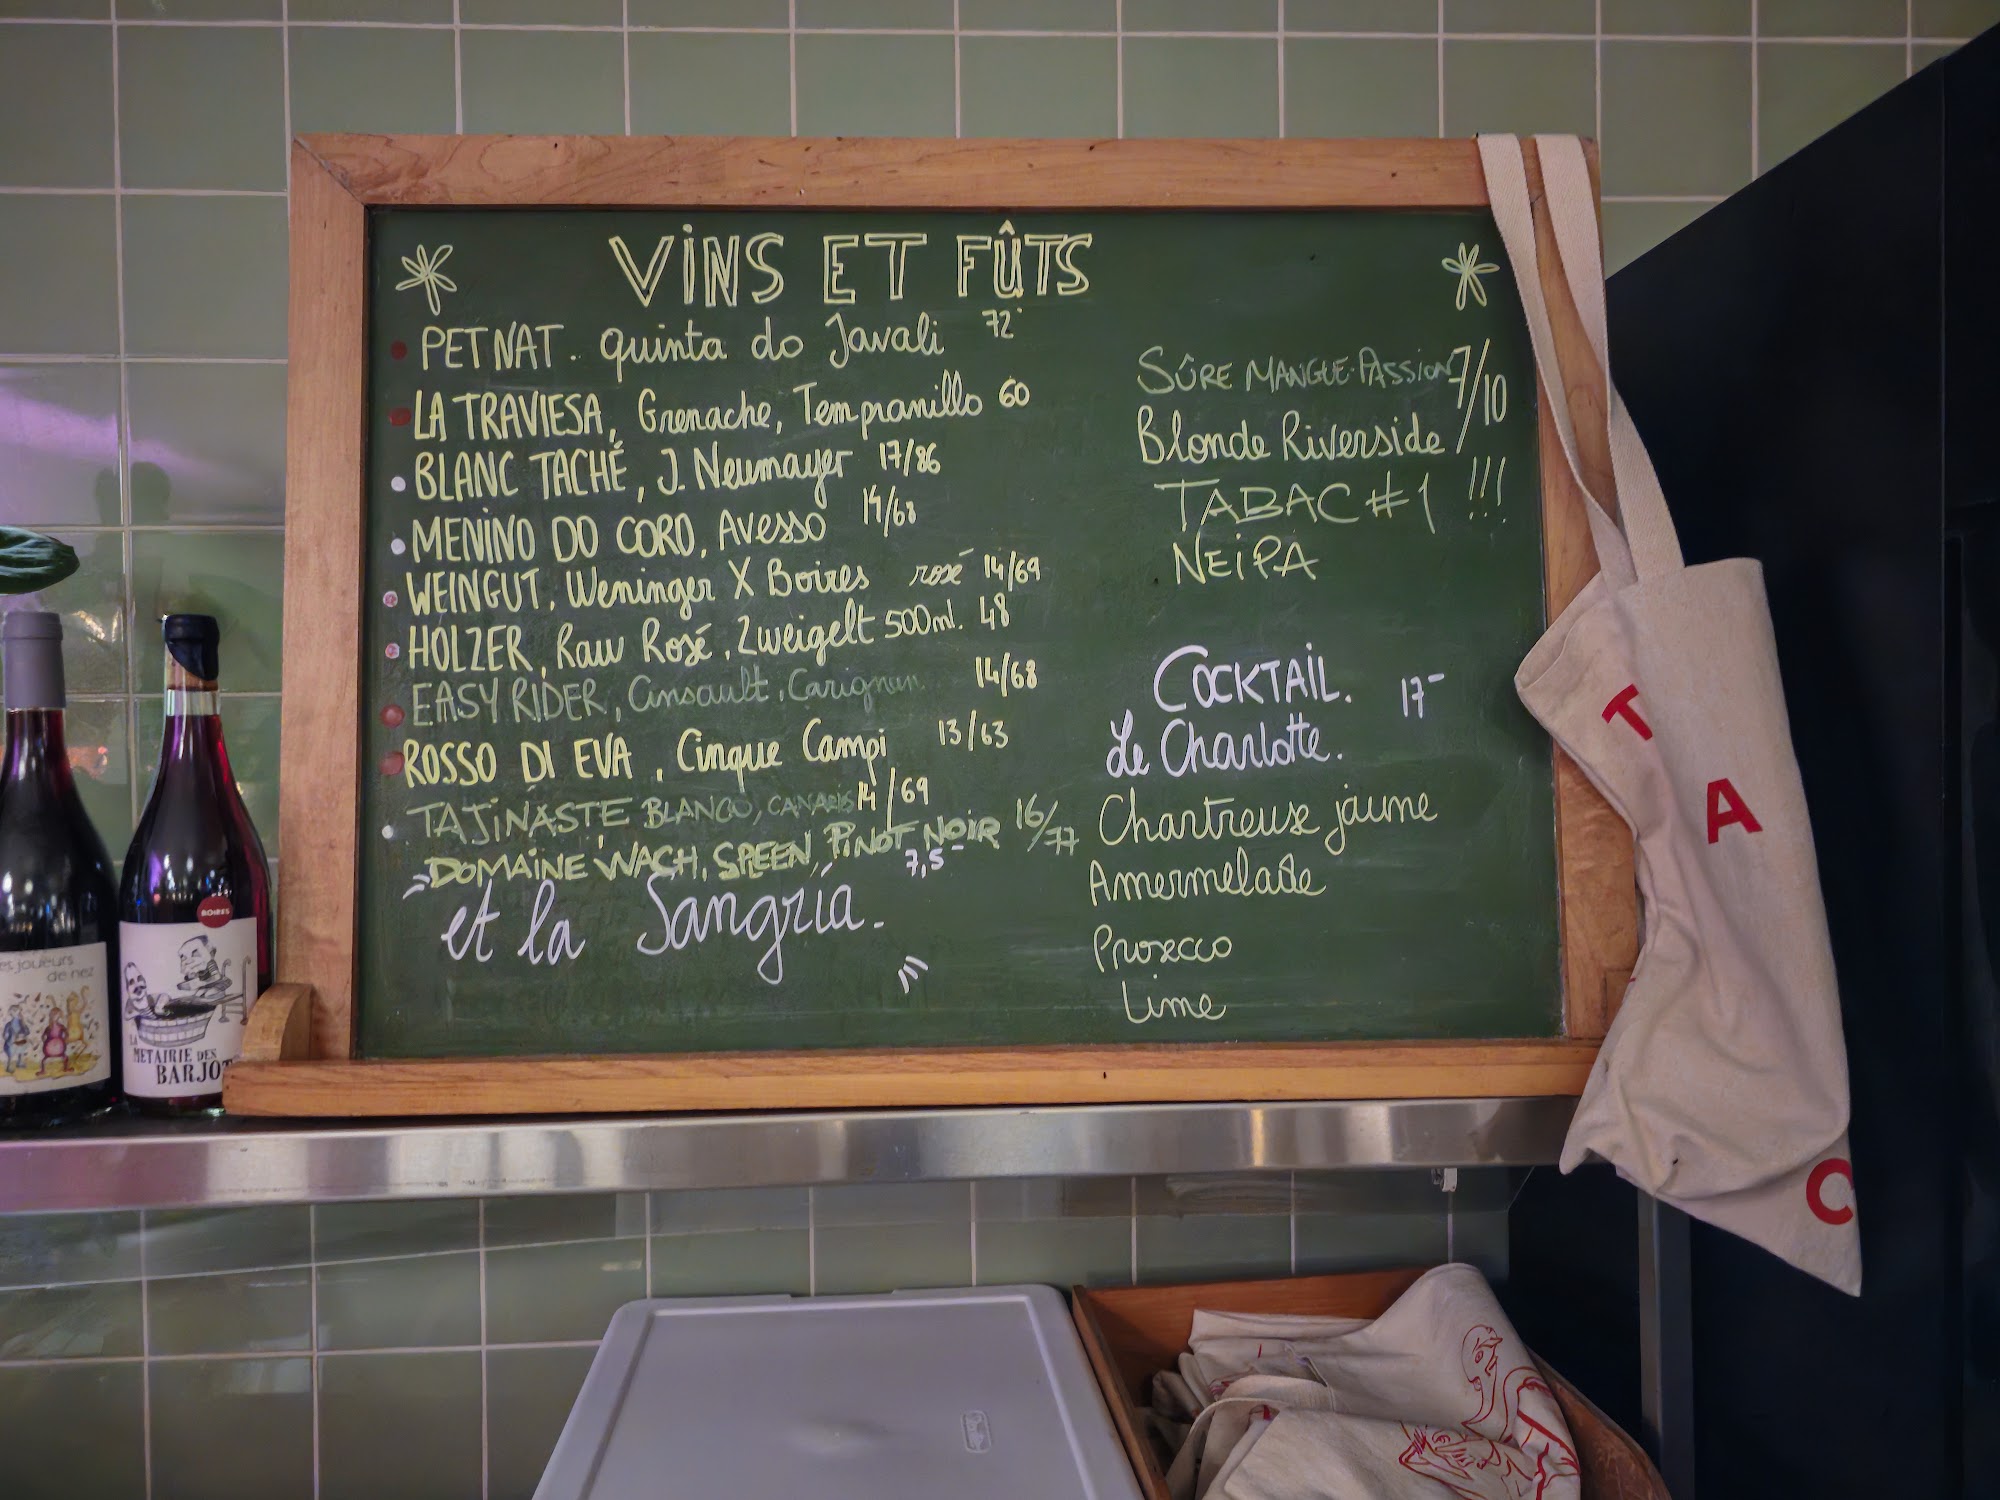 VINS ET FÛTS
PETNAT. quinta do Javali 72
LA TRAVIESA, Grenache, Tempranillo 60
BLANC TACHÉ, J. Neumayer 17/86
MENINO DO CORO, Avesso 14/68
WEINGUT, Weninger X Boires rosé 14/69
HOLZER, Raw Rosé, Zweigelt 500ml. 48
EASY RIDER, Cinsault, Carignan 14/68
ROSSO DI EVA, Cinque Campi 13/63
TAJINASTE BLANCO, CANARIS 14/69
DOMAINE WACH, SPEEN, PINOT NOIR 16/77
et la Sangría. 7,5-
SÛRE MANGUE-PASSION 7/10
Blonde Riverside
TABAC #1 !!!
NEIPA
COCKTAIL. 17-
Le Charlotte.
Chartreuse jaune
Amermelade
Prosecco
Lime
T
A
C
joueurs
de nez
BOIRES
LA
METAIRIE DES
BARJOT